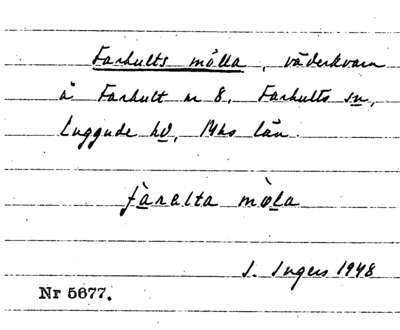 Farhults mölla, väderkvarn
å Farhult nr 8, Farhults sn,
Luggude hd, Mhs län.
faralta möla
I. Ingers 1948
Nr 5677.